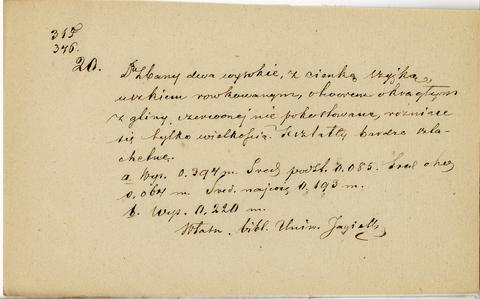 315
376.
20. Dzbany dwa wysokie, z cienką szyjką,
uszkiem rowkowanym, otworem okrągłym
z gliny czerwonej nie pokostowane, różniące
się tylko wielkością. Kształty bardzo szla-
chetne.
a Wys. 0.394 m. Śred. podst. 0.085. Śred. otw.
0.064 m. Śred. najwię. 0,193 m.
b. Wys. 0.220 m.
Własn. bibl. Uniw. Jagiell.